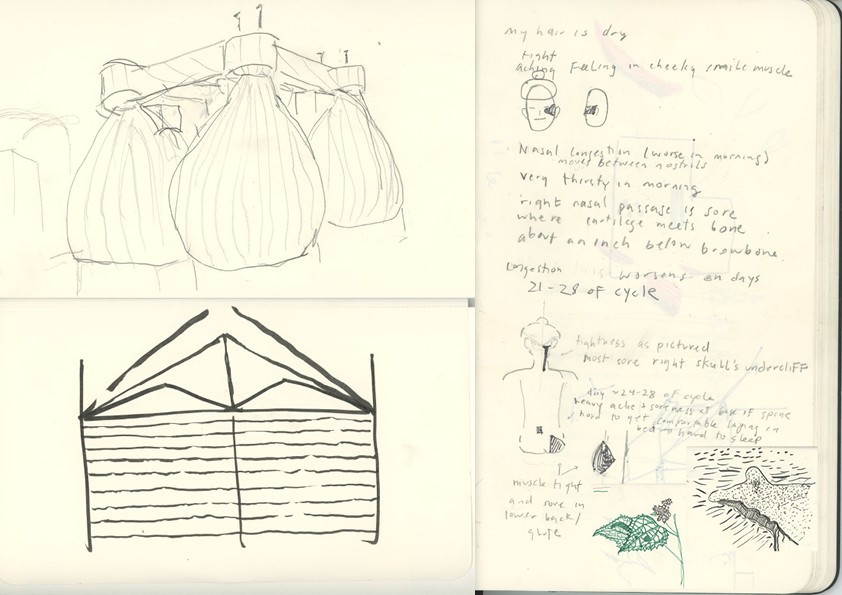 my hair is dry
tight
aching Feeling in cheeky smile muscle
Nasal Congestion (worse in morning)
moves between nostrils
very thirsty in morning
right nasal passage is sore
where cartilege meets bone
about an inch below browbone.
Congestion worsens on days
21-28 of cycle
tightness as pictured
most sore right skull's undercliff
day ~24-28 of cycle
heavy ache & soreness at base of spine
hard to get comfortable laying in
bed → hard to sleep
muscle tight
and sore in
lower back/
glute